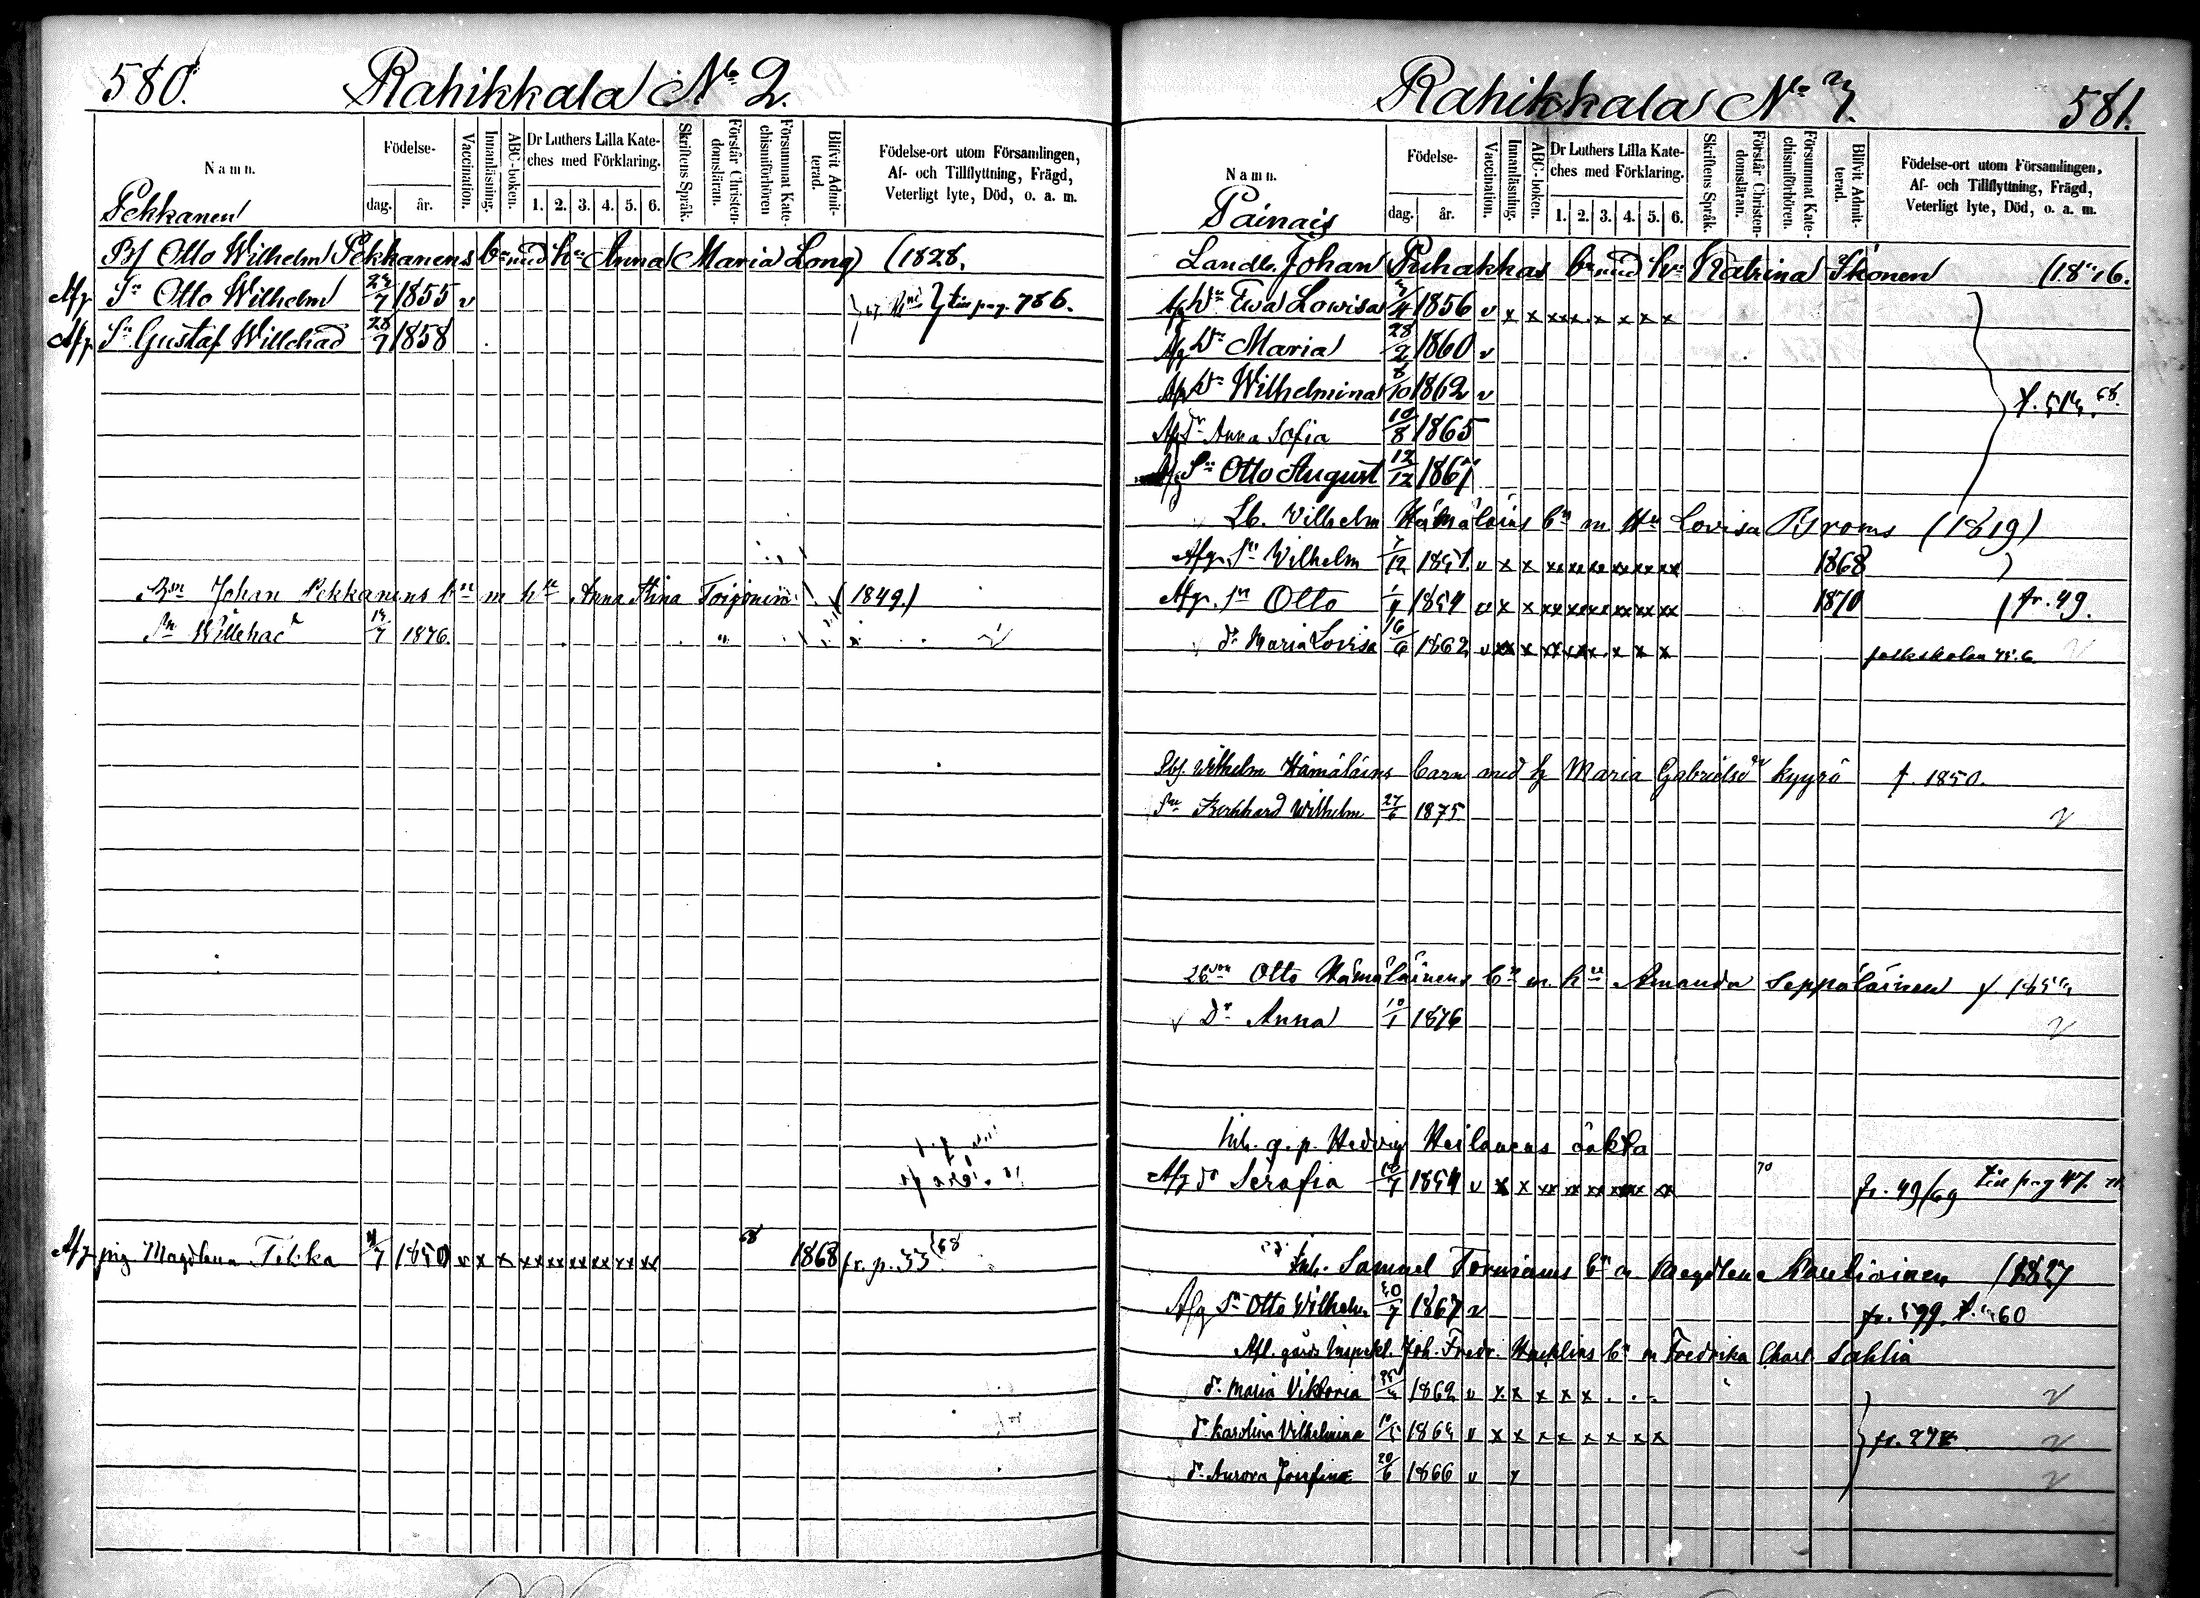 580.
Rahikkala No 2.
Namn.
Födelse-
dag.
år.
Vaccination.
Innanläsning.
ABC-boken.
Dr Luthers Lilla Kateches med Förklaring.
1. 2. 3. 4. 5. 6.
Skriftens Språk.
Förstår Christendomsläran.
Försummat Katechismiförhören
Blifvit Admitterad.
Födelse-ort utom Församlingen, Af- och Tillflyttning, Frägd, Veterligt lyte, Död, o. a. m.
Pekkanen
Bf Otto Wilhelm Pekkanens bn med hu Anna Maria Long (1828.
Afg. Sn Otto Wilhelm 7 1855 v till pag. 786.
Afg. Sn Gustaf Willehad 28/7 1858
Johan Pekkanens bn m hu Anna Stina Toiponen (1849.)
Sn Willehad 1876. v
Afg. pig Magdlena Tikka /7 1850 v x x xx xx xx xx xx xx 68 1868 fr. p. 33/68
Rahikkala No 7.
581.
Namn.
Födelse-
dag.
år.
Vaccination.
Innanläsning.
ABC-boken.
Dr Luthers Lilla Kateches med Förklaring.
1. 2. 3. 4. 5. 6.
Skriftens Språk.
Förstår Christendomsläran.
Försummat Katechismiförhören.
Blifvit Admitterad.
Födelse-ort utom Församlingen, Af- och Tillflyttning, Frägd, Veterligt lyte, Död, o. a. m.
Painais
Landb. Johan Puhakkas bn med hu Katrina Ikonen
Afg Dr Ewa Lowisa /4 1856 v x x xx x x x x x
Afg Dr Maria 28/2 1860 v
Afg Dr Wilhelmina 8/10 1862 v
Afg Dr Anna Sofia 10/8 1865
Afg Sn Otto August 12/12 1867
Lb. Wilhelm Hämäläins bn m Hu Lovisa Broms (1819)
Afg. Sn Wilhelm 7/12 1851 v x x xx xx xx xx xx xx 1868
Afg. Sn Otto 1854 v x x xx xx xx xx xx xx 1870 fr. 49.
dr Maria Lovisa 16/6 1862 v xx x xx xx x x x folkskolan v
Wilhelm Hämäläins barn med h Maria Gabrielsdr Kyyrö f. 1850.
Sn Bernhard Wilhelm 27/6 1875 v
Otto Hämäläinens bn m. hu Amanda Seppäläinen f
v Dr Anna 10/1 1876 v
Inh. q. p. Hedvig Heilanens oäkta
Afg dr Serafia 1854 v x x xx xx xx xx xx 70 fr. 49/69 till pag 47.
Inh. Samuel Tornianis bn m Magdlena (1827
Afg Sn Otto Wilhelm 30/7 1867 v
Afl. gårds Inspekt. Joh. Fredr. Hacklins bn m Fredrika Charl Sahlia
dr Maria Viktoria 1862 v x x x x x v
dr Karolina Vilhelmina v x x x x x x x x v
dr Aurora Josefina 20/6 1866 v v